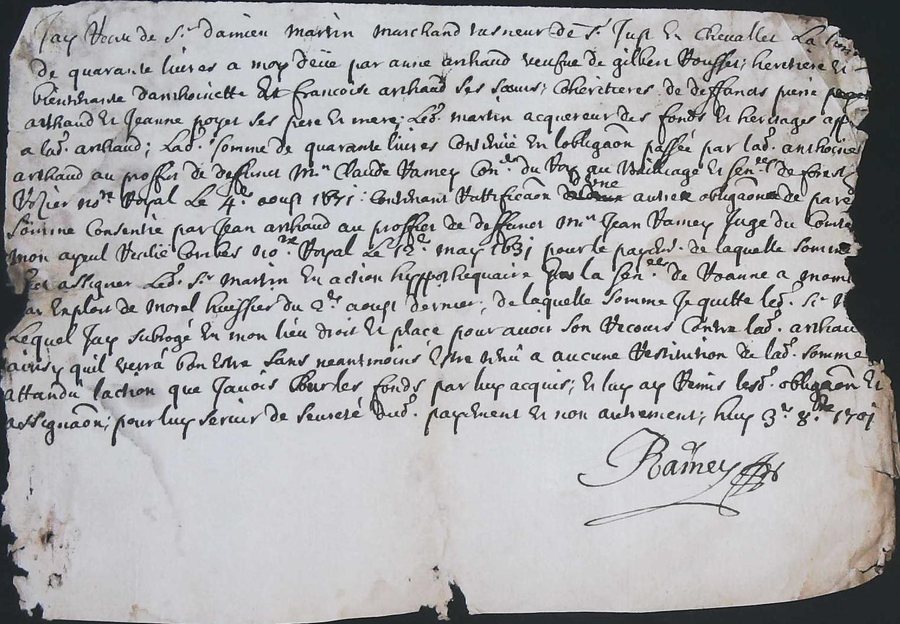 Jay Receu de Sr. damien martin marchand tasneur de St. Just En Chevallet La
de quarante livres a moy deüe par anne arthaud veufue de gilbert Rousset; heritiere Et
bientenante danthoinette Et francoise arthaud ses sœurs; Coheritieres de deffunds pierre
arthaud Et Jeanne poyet ses pere Et mere; Led. martin acquereur des fonds Et heritages
a lad. arthaud; Lad. somme de quarante livres Contenüe En lobligaon passée par lad. anthoinet
arthaud au proffit de deffunct Mre Claude Ramey Coner. du Roy au Bailliage Et Senée. de forest
Rosier nore. Royal Le 4e. aoust 1671: Contenant Rattificaon dune autre obligaon de par
somme Consentie par Jean arthaud au proffit de deffunct Mre Jean Ramey Juge du
mon ayeul Receüe Combes nore. Royal Le 12e. may 1631 pour le payemt. de laquelle somme
fet assigner Led. Sr. Martin En action hyppothequaire En la Senée. de Roanne a
par Exploit de morel huissier du 2e. aoust dernier; de laquelle somme Je quitte led. Sr. M
Lequel Jay subrogé En mon lieu droit Et place pour avoir son Recours Contre lad. arthaud
ainsy quil verra bon Estre sans neantmoins Estre tenu a aucune Restitution de lad. somme
attandu laction que Javois sur les fonds par luy acquis; Et luy ay Remis lesd. obligaon Et
assignaon; pour luy servir de seureté dud. payement Et non autrement; huy 3e. 8bre 1701
Ramey